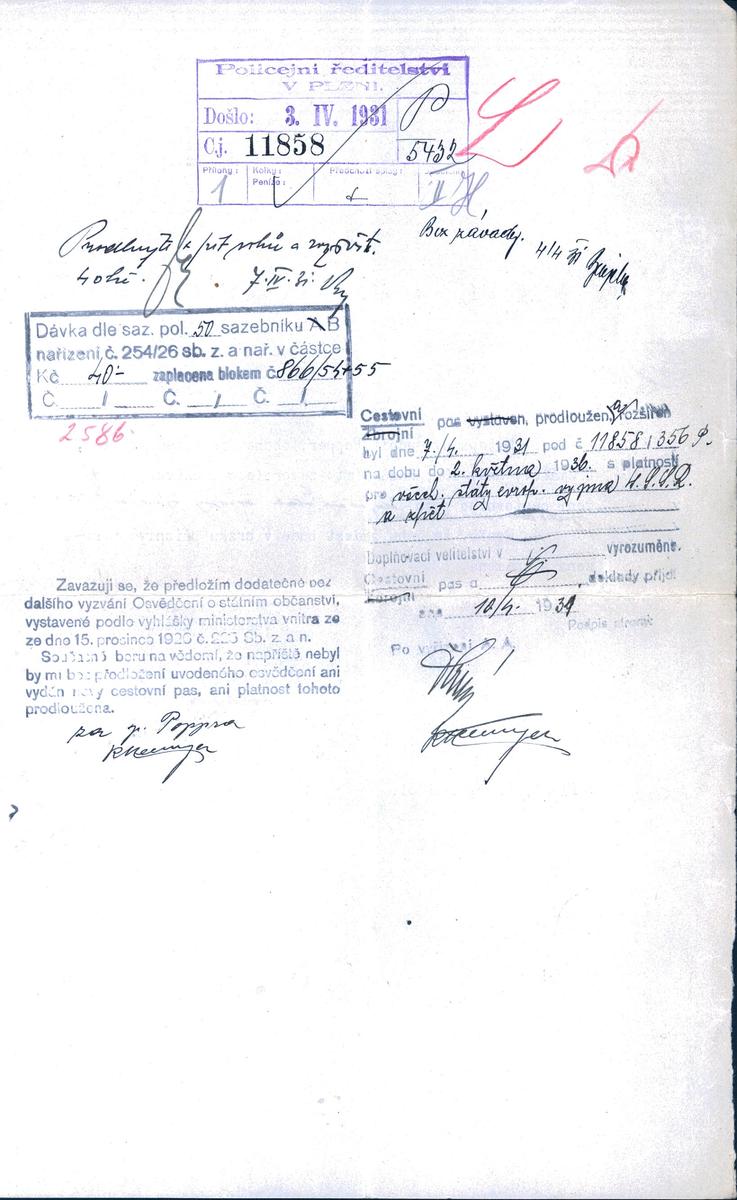 Policejní ředitelství
V PLZNI.
Došlo: 3. IV. 1931 P
Č.j. 11858 5432
Přílohy: 1 Kolky: Peníze:
Prodloužiti na pět roků a rozšířit.
4 obě. 7.IV.31.
Bez závady.
4/4 31
Dávka dle saz. pol. 50 sazebníku A B
nařízení č. 254/26 sb. z. a nař. v částce
Kč 40- zaplacena blokem č. 866/54+55
Č. / Č. / Č. /
2586.
Cestovní pas vystaven, prodloužen, a rozšířen
Zbrojní
byl dne 7/4. 1931 pod č 11858/356 P.
na dobu do 2. května 1936. s platností
pro všech. státy evrop. vyjma U.S.S.R.
a zpět
Doplňovací velitelství v vyrozuměno.
Cestovní pas a doklady přijal
Zbrojní
dne 10/4. 1931
Podpis strany:
Po vyřízení A. A.
Zavazuji se, že předložím dodatečně bez
dalšího vyzvání Osvědčení o státním občanství,
vystavené podle vyhlášky ministerstva vnitra ze
ze dne 15. prosince 1926 č. 225 Sb. z. a n.
Současně beru na vědomí, že napříště nebyl
by mi bez předložení uvedeného osvědčení ani
vydán nový cestovní pas, ani platnost tohoto
prodloužena.
za p. Poppra